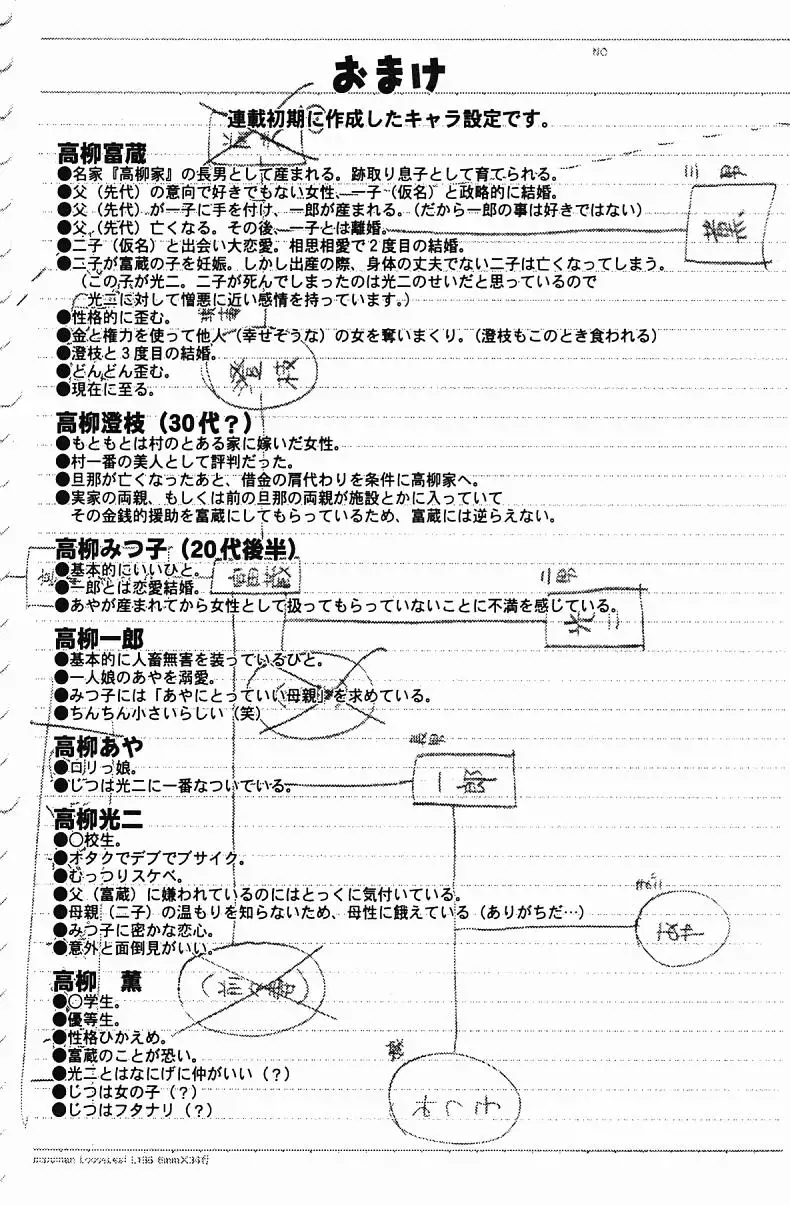 NO
おまけ
連載初期に作成したキャラ設定です。
高柳富蔵
●名家『高柳家』の長男として産まれる。跡取り息子として育てられる。
●父（先代）の意向で好きでもない女性、一子（仮名）と政略的に結婚。
●父（先代）が一子に手を付け、一郎が産まれる。（だから一郎の事は好きではない）
●父（先代）亡くなる。その後、一子とは離婚。
●二子（仮名）と出会い大恋愛。相思相愛で２度目の結婚。
●二子が富蔵の子を妊娠。しかし出産の際、身体の丈夫でない二子は亡くなってしまう。
（この子が光二。二子が死んでしまったのは光二のせいだと思っているので
光二に対して憎悪に近い感情を持っています。）
●性格的に歪む。
●金と権力を使って他人（幸せそうな）の女を奪いまくり。（澄枝もこのとき食われる）
●澄枝と３度目の結婚。
●どんどん歪む。
●現在に至る。
高柳澄枝（30代？）
●もともとは村のとある家に嫁いだ女性。
●村一番の美人として評判だった。
●旦那が亡くなったあと、借金の肩代わりを条件に高柳家へ。
●実家の両親、もしくは前の旦那の両親が施設とかに入っていて
その金銭的援助を富蔵にしてもらっているため、富蔵には逆らえない。
高柳みつ子（20代後半）
●基本的にいいひと。
●一郎とは恋愛結婚。
●あやが産まれてから女性として扱ってもらっていないことに不満を感じている。
高柳一郎
●基本的に人畜無害を装っているひと。
●一人娘のあやを溺愛。
●みつ子には「あやにとっていい母親」を求めている。
●ちんちん小さいらしい（笑）
高柳あや
●ロリっ娘。
●じつは光二に一番なついでいる。
高柳光二
●〇校生。
●オタクでデブでブサイク。
●むっつりスケベ。
●父（富蔵）に嫌われているのにはとっくに気付いている。
●母親（二子）の温もりを知らないため、母性に餓えている（ありがちだ…）
●みつ子に密かな恋心。
●意外と面倒見がいい。
高柳　薫
●〇学生。
●優等生。
●性格ひかえめ。
●富蔵のことが恐い。
●光二とはなにげに仲がいい（？）
●じつは女の子（？）
●じつはフタナリ（？）
三郎
薫
澄枝
富蔵
二郎
光二
一郎
あや
みつ子